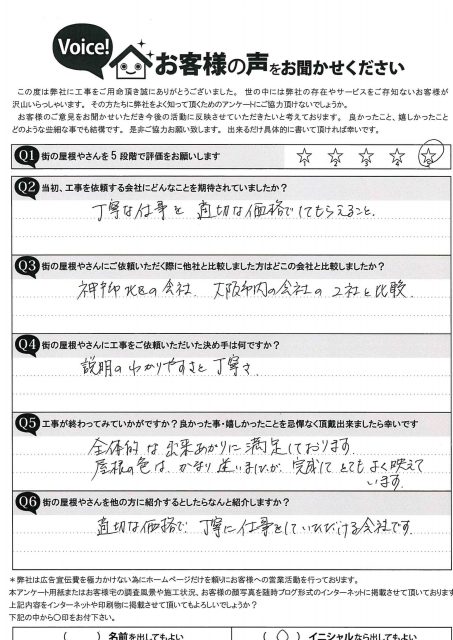 Voice!
お客様の声をお聞かせください
この度は弊社に工事をご用命頂き誠にありがとうございました。世の中には弊社の存在やサービスをご存知ないお客様が
沢山いらっしゃいます。その方たちに弊社をよく知って頂くためのアンケートにご協力頂けないでしょうか。
お客様のご意見をお聞かせいただき今後の活動に反映させていただきたいと考えております。良かったこと、嬉しかったこと
どのような些細な事でも結構です。是非ご協力お願い致します。出来るだけ具体的に書いて頂ければ幸いです。
Q1 街の屋根やさんを5段階で評価をお願いします
☆1 ☆2 ☆3 ☆4 ☆5
Q2 当初、工事を依頼する会社にどんなことを期待されていましたか？
丁寧な仕事を 適切な価格でしてもらえること.
Q3 街の屋根やさんにご依頼いただく際に他社と比較しました方はどこの会社と比較しましたか？
神戸市北区の会社. 大阪市内の会社の 2社と比較.
Q4 街の屋根やさんに工事をご依頼いただいた決め手は何ですか？
説明のわかりやすさと丁寧さ.
Q5 工事が終わってみていかがですか？良かった事・嬉しかったことを忌憚なく頂戴出来ましたら幸いです
全体的な出来あがりに満足しております.
屋根の色は、かなり迷いましたが、完成してとてもよく映えて
います.
Q6 街の屋根やさんを他の方に紹介するとしたらなんと紹介しますか？
適切な価格で、丁寧に仕事をしていただける会社です.
＊弊社は広告宣伝費を極力かけない為にホームページだけを頼りにお客様への営業活動を行っております。
本アンケート用紙またはお客様宅の調査風景や施工状況、お客様の顔写真を随時ブログ形式のインターネットに掲載させて頂いており
上記内容をインターネットや印刷物に掲載させて頂いてもよろしいでしょうか？
下記の中から○印をお付下さい。
( ) 名前を出してもよい (○) イニシャルなら出してもよい